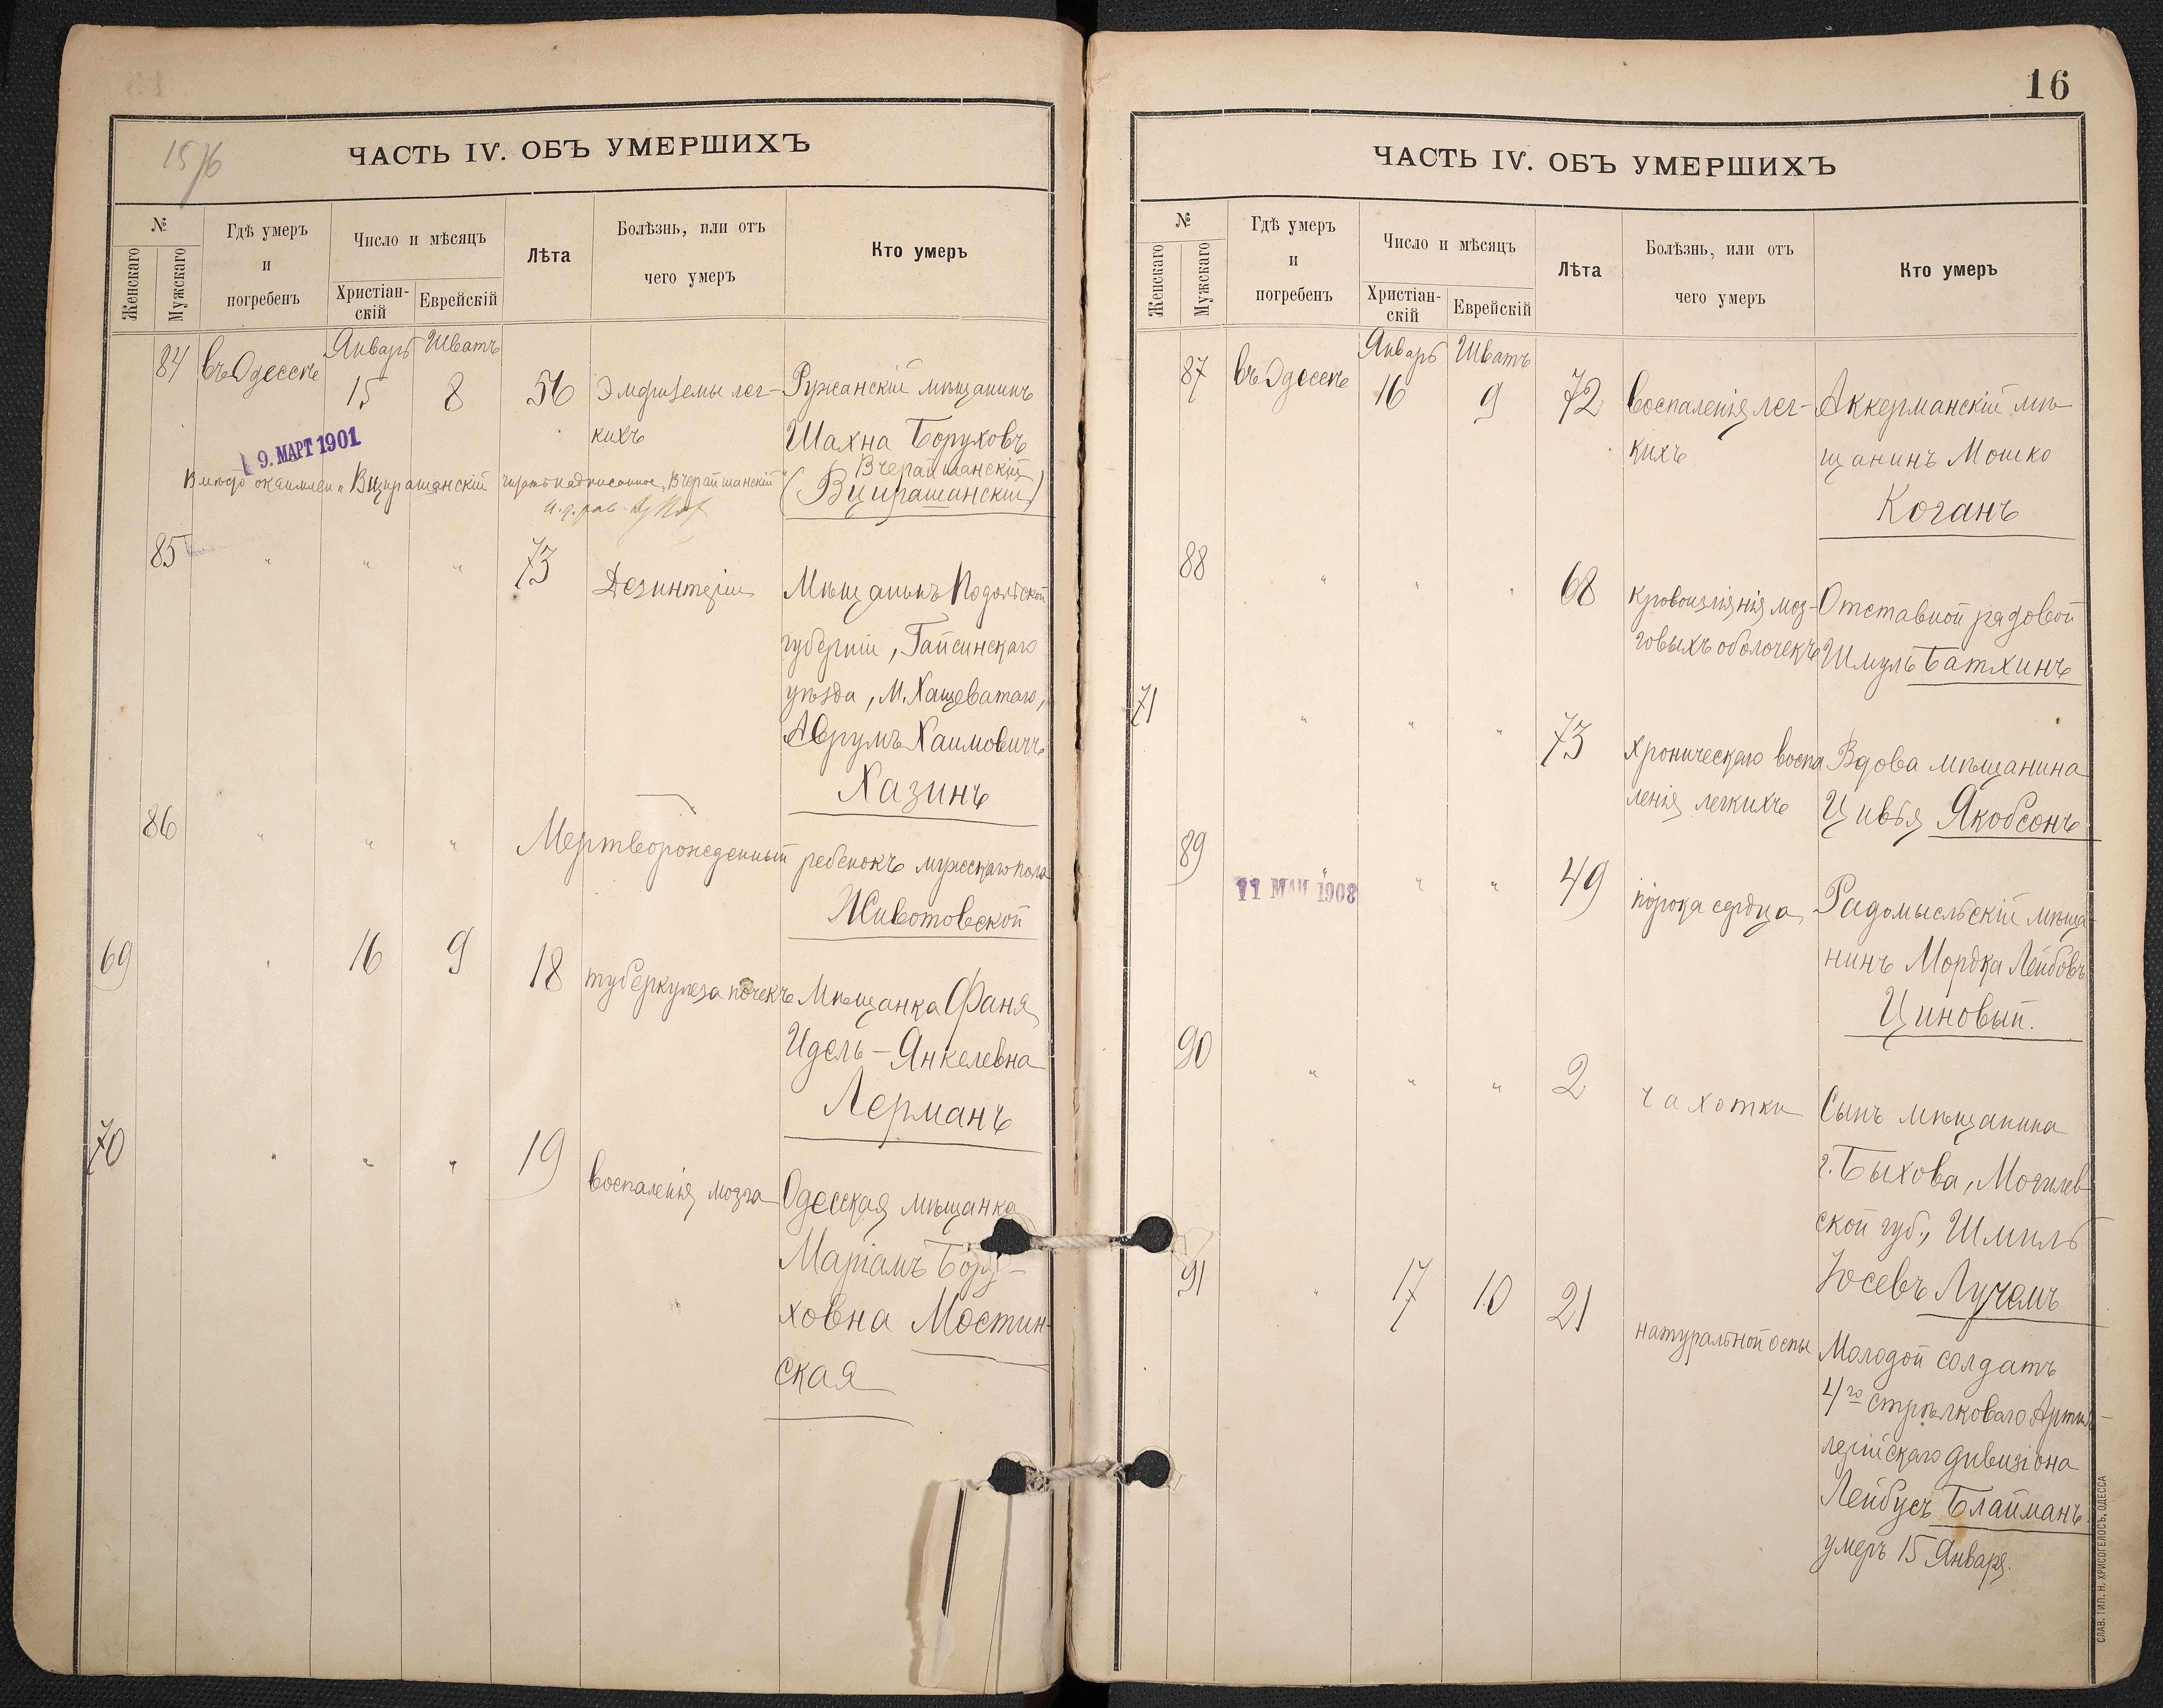 15/16
ЧАСТЬ IV. ОБЪ УМЕРШИХЪ
№
Женскаго
Мужскаго
Гдѣ умеръ
и
погребенъ
Число и мѣсяцъ
Христіан-
скій
Еврейскій
Лѣта
Болѣзнь, или отъ
чего умеръ
Кто умеръ
84 въ Одессѣ Январь 15 Шватъ 8 56 Эмфиземы лег-
кихъ
Ружанскій мѣщанинъ
Шахна Боруховъ
Вчерайшанскій
(Вцирашанскій)
9. МАРТ 1901
Вмѣсто „Вцирашанскій надписанное „Вчерайшанскій"
85 „ „ „ 73 Дезинтеріи
Мѣщанинъ Подольской
губерніи, Гайсинскаго
уѣзда, М. Хащеватаго,
Аврумъ Хаимовичъ
Хазинъ
86 „ „ „ Мертворожденный ребенокъ мужскаго пола
Животовской
69 „ 16 9 18 туберкулеза почекъ
Мѣщанка Фаня
Идель-Янкелевна
Лерманъ
70 „ „ „ 19 воспаленія мозга
Одесская мѣщанка
Маріамъ Бору-
ховна Мостин-
ская
16
ЧАСТЬ IV. ОБЪ УМЕРШИХЪ
№
Женскаго
Мужскаго
Гдѣ умеръ
и
погребенъ
Число и мѣсяцъ
Христіан-
скій
Еврейскій
Лѣта
Болѣзнь, или отъ
чего умеръ
Кто умеръ
87 въ Одессѣ Январь 16 Шватъ 9 72 воспаленія лег-
кихъ
Аккерманскій мѣ-
щанинъ Мошко
Коганъ
88 „ „ „ 68 кровоизліянія моз-
говыхъ оболочекъ
Отставной рядовой
Шмуль Батхинъ
71 „ „ „ 73 хроническаго воспа
ленія легкихъ
Вдова мѣщанина
Цивья Якобсонъ
89 „ „ „ 49 порока сердца
11 МАЙ 1908
Радомысльскій мѣща-
нинъ Мордка Лейбовъ
Циновый.
90 „ „ „ 2 чахотки
Сынъ мѣщанина
г. Быхова, Могилев-
ской губ., Шмиль
Іосевъ Лучемъ
91 „ 17 10 21 натуральной оспы
Молодой солдатъ
4го стрѣлковаго Артил-
лерійскаго дивизіона
Лейбусъ Блайманъ
умеръ 15 Января.
СЛАВ. ТИП. Н. ХРИСОГЕЛОСЪ, ОДЕССА